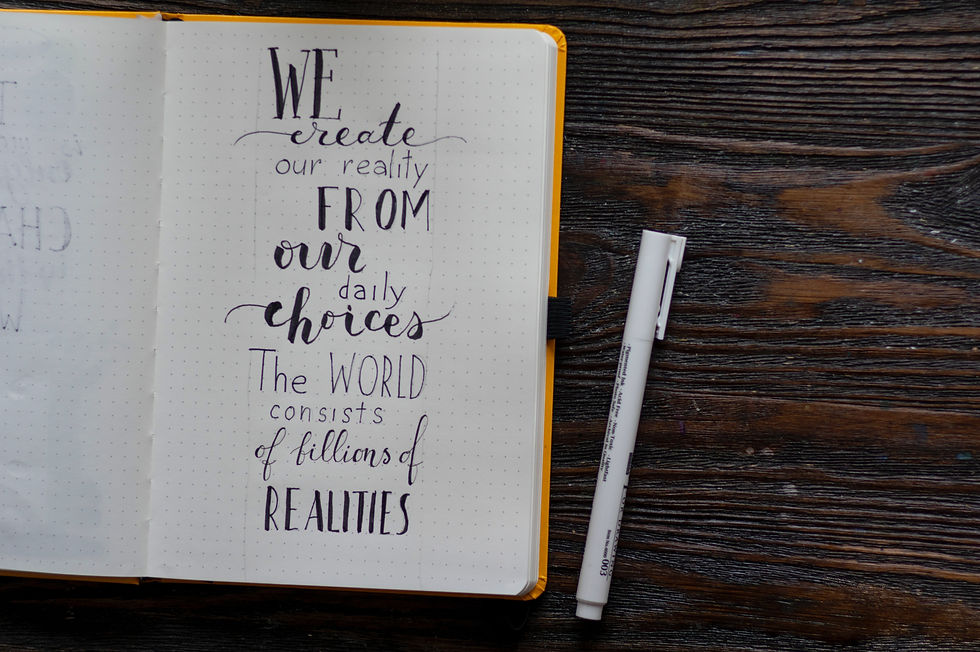 WE
create
our reality
FROM
our
daily
choices
The WORLD
consists
of billions of
REALITIES
Pigmented Ink · Acid Free · Non Toxic · Lightfast
003